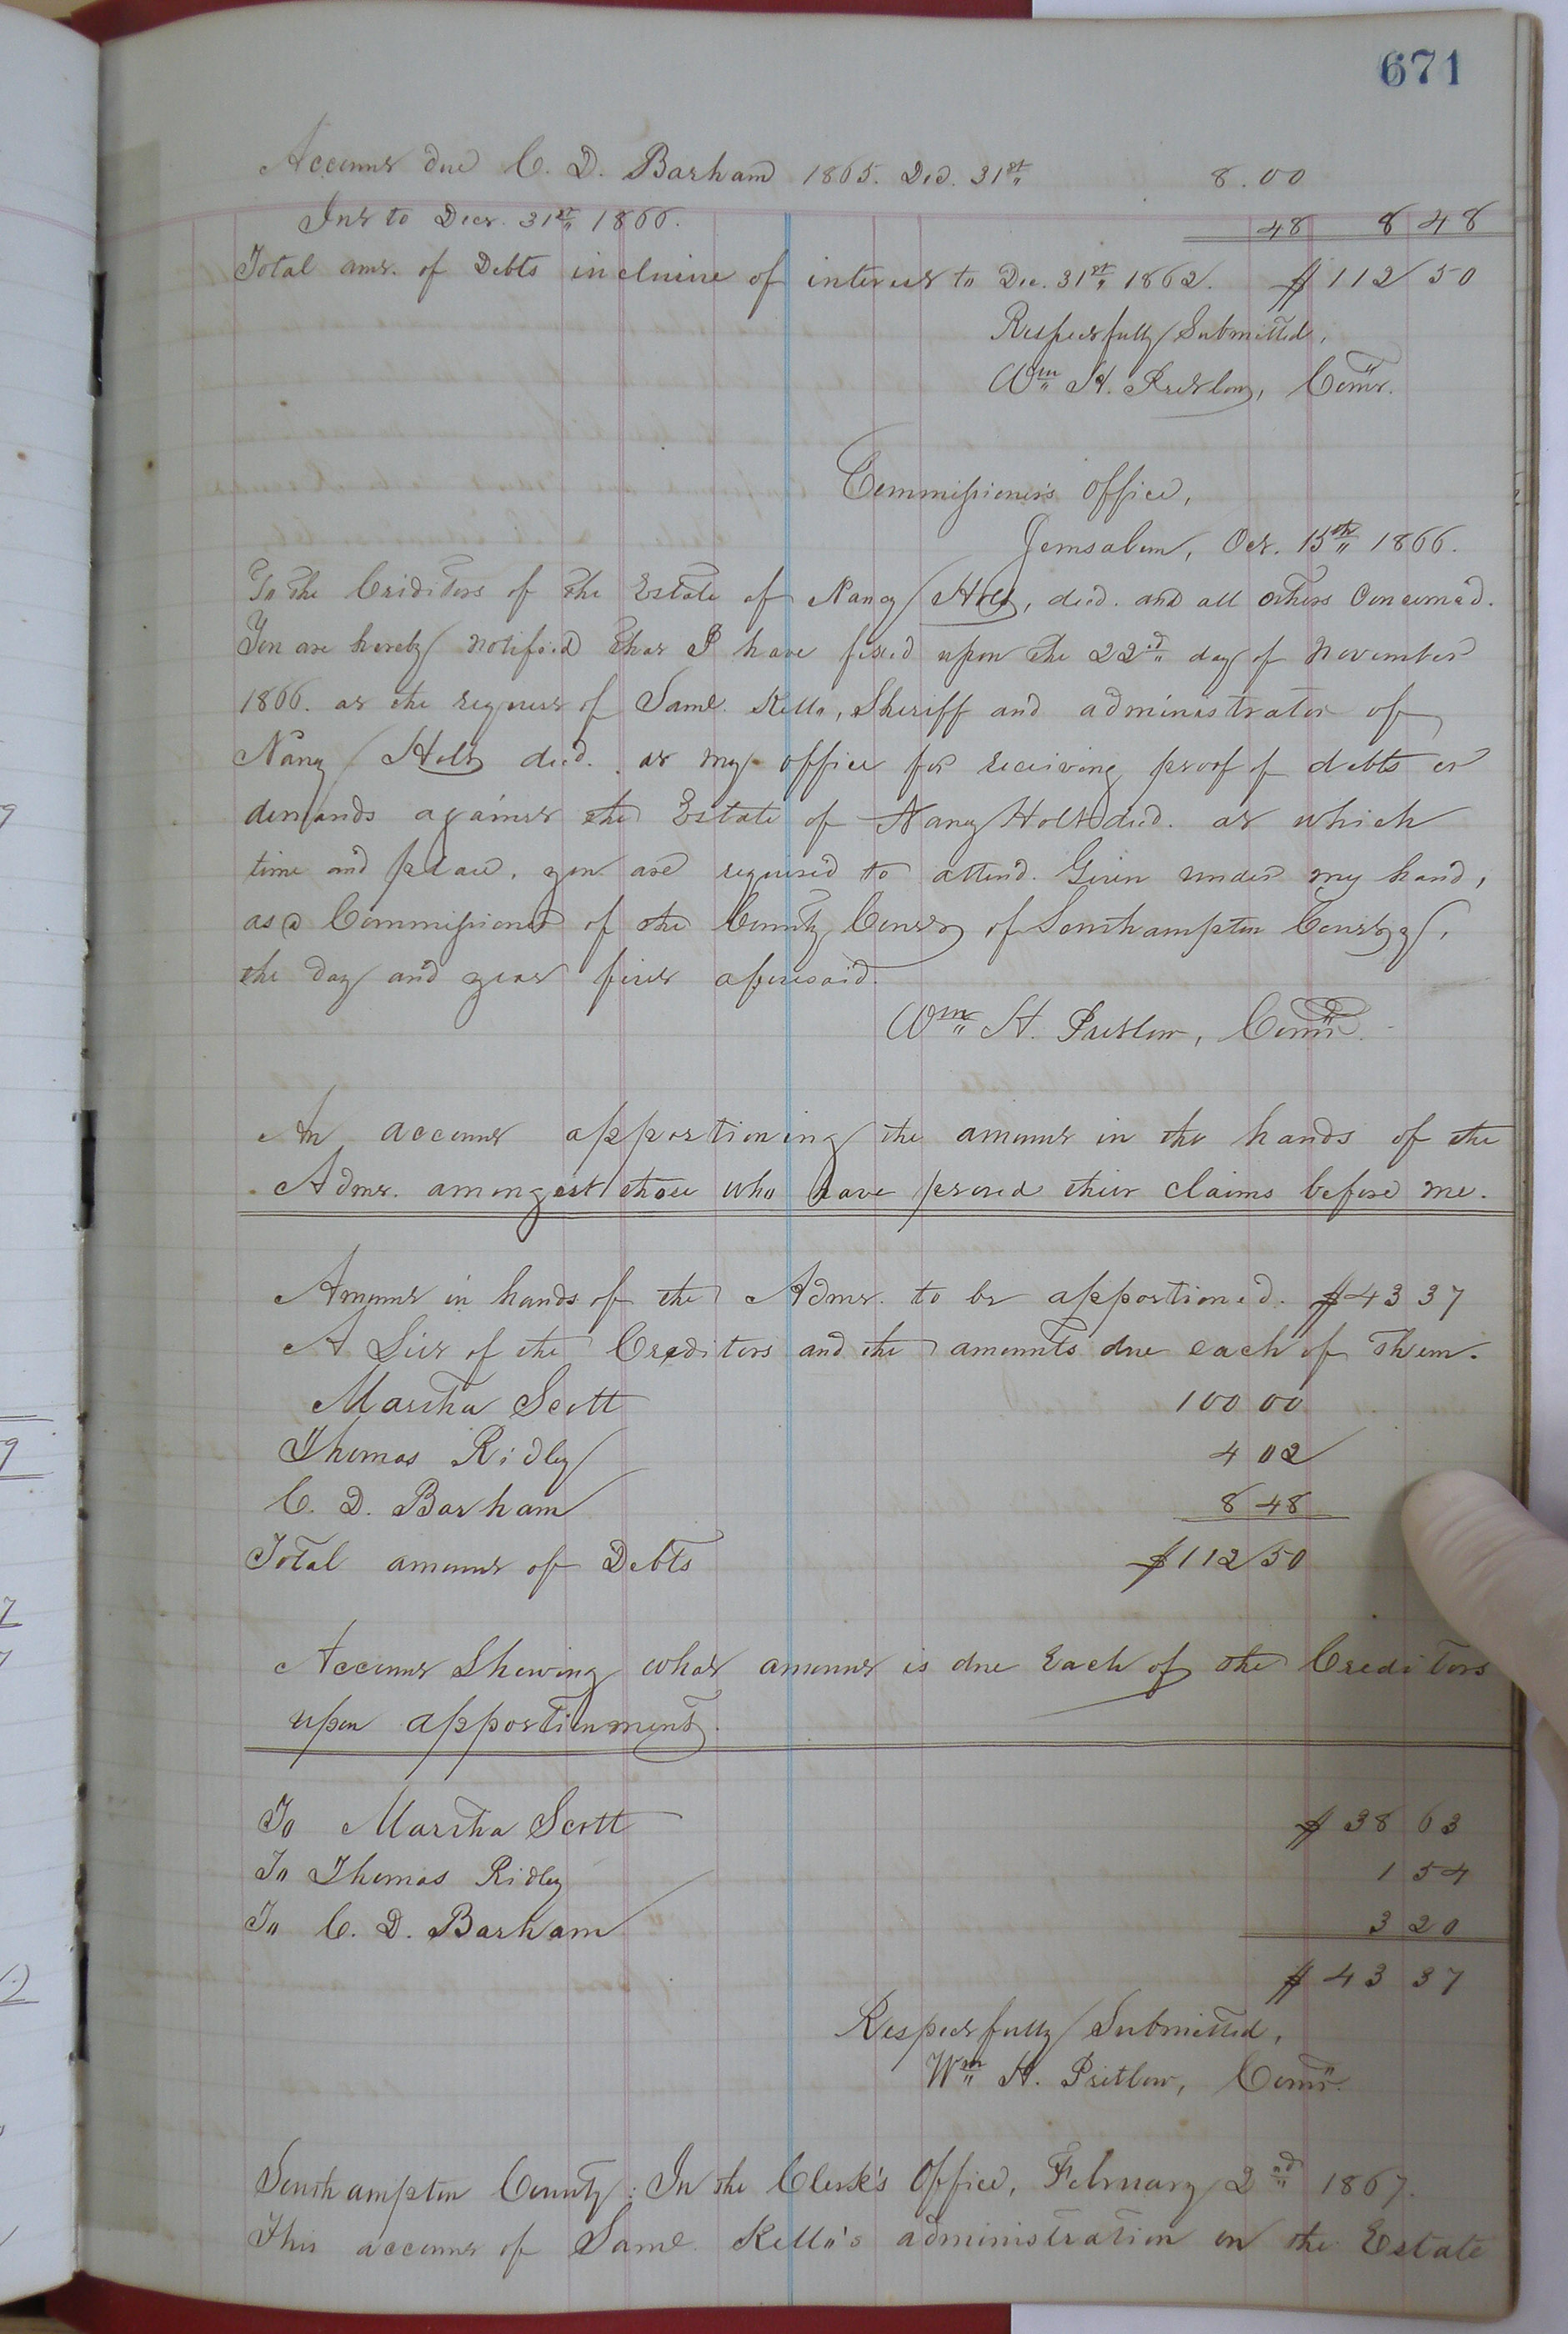 671
Account due C. D. Barham 1865. Dec. 31st 8.00
Int to Decr. 31st 1866. 48 8 48
Total amt. of Debts inclusive of interest to Dec. 31st 1862. $112 50
Respectfully Submitted,
Wm H. Pretlow, Comr.
Commissioner's Office,
Jerusalem, Oct. 15th 1866.
To the Creditors of the Estate of Nancy Holt, decd. and all others Concerned.
You are hereby notified that I have fixed upon the 22d day of November
1866. at the request of Saml. Kello, Sheriff and administrator of
Nancy Holt decd. at my office for receiving proof of debts or
demands against the Estate of Nancy Holt decd. at which
time and place, you are required to attend. Given under my hand,
as a Commissioner of the County Court of Southampton County,
the day and year first aforesaid.
Wm H. Pretlow, Comr.
An account apportioning the amount in the hands of the
Admr. amongest those who have proved their claims before me.
Amount in hands of the Admr. to be apportioned. $43 37
A List of the Creditors and the amounts due each of them.
Martha Scott 100 00
Thomas Ridley 4 02
C. D. Barham 8 48
Total amount of Debts $112 50
Account Shewing what amount is due Each of the Creditors
upon apportionment.
To Martha Scott $ 38 63
To Thomas Ridley 1 54
To C. D. Barham 3 20
$ 43 37
Respectfully Submitted,
Wm H. Pretlow, Comr.
Southampton County: In the Clerk's Office, February 2nd 1867.
This account of Saml. Kello's administration on the Estate